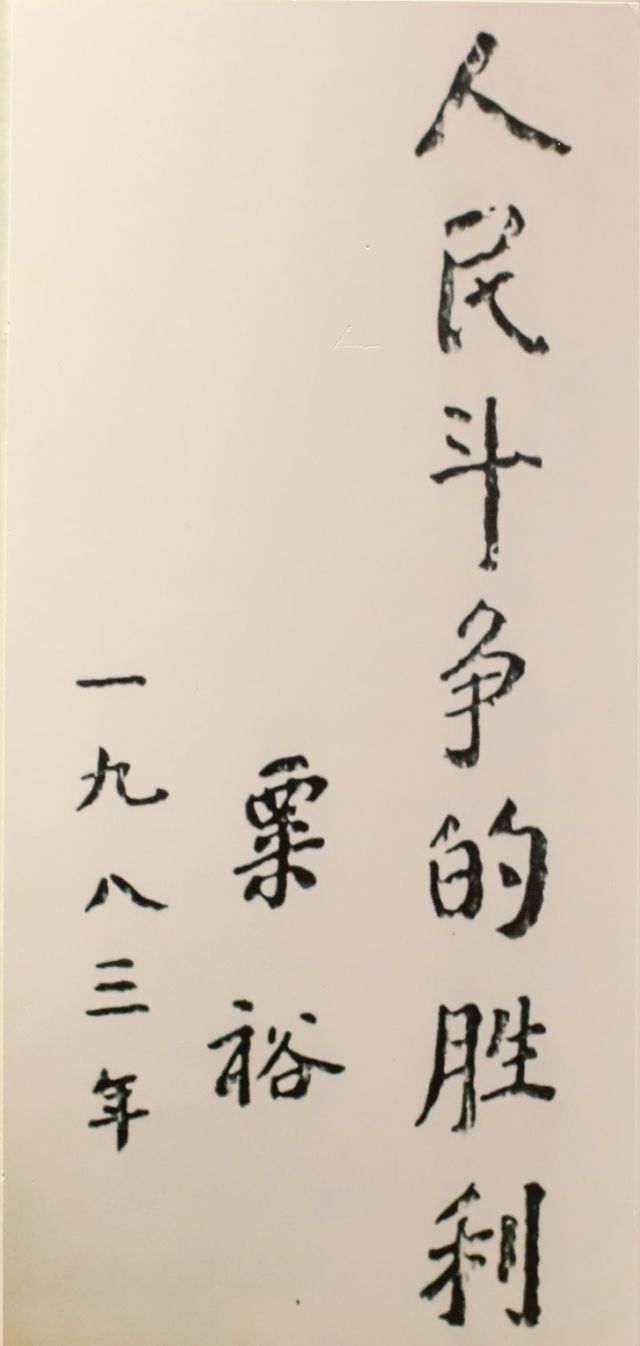 人民斗争的胜利
粟裕
一九八三年